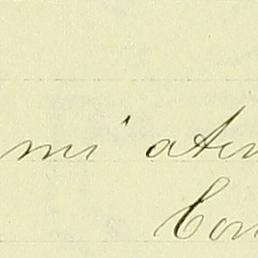 mi aten
Con